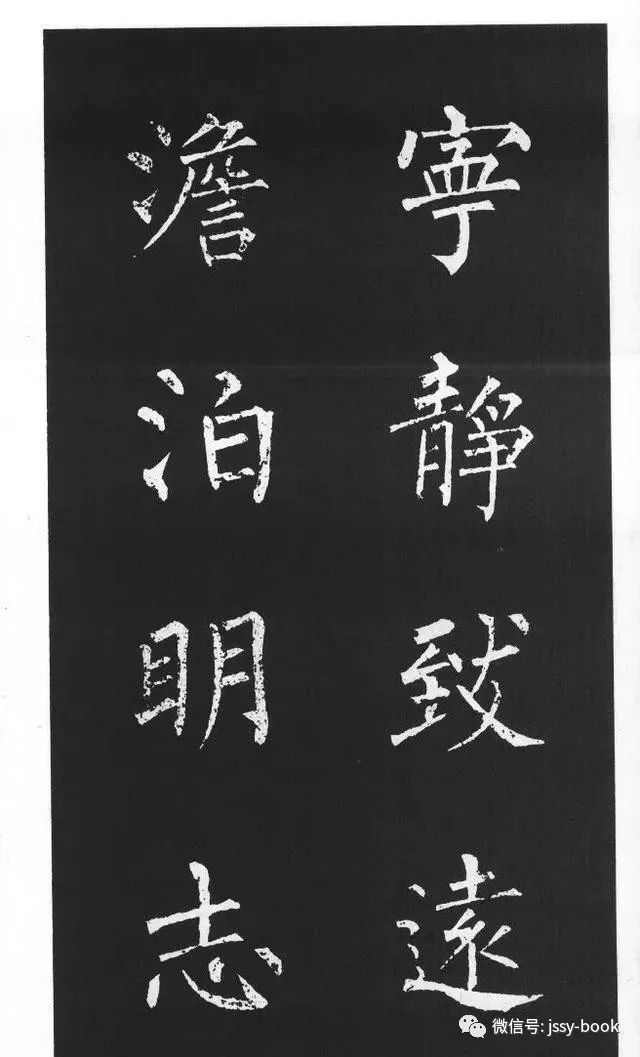 寧靜致遠
澹泊明志
微信号: jssy-book